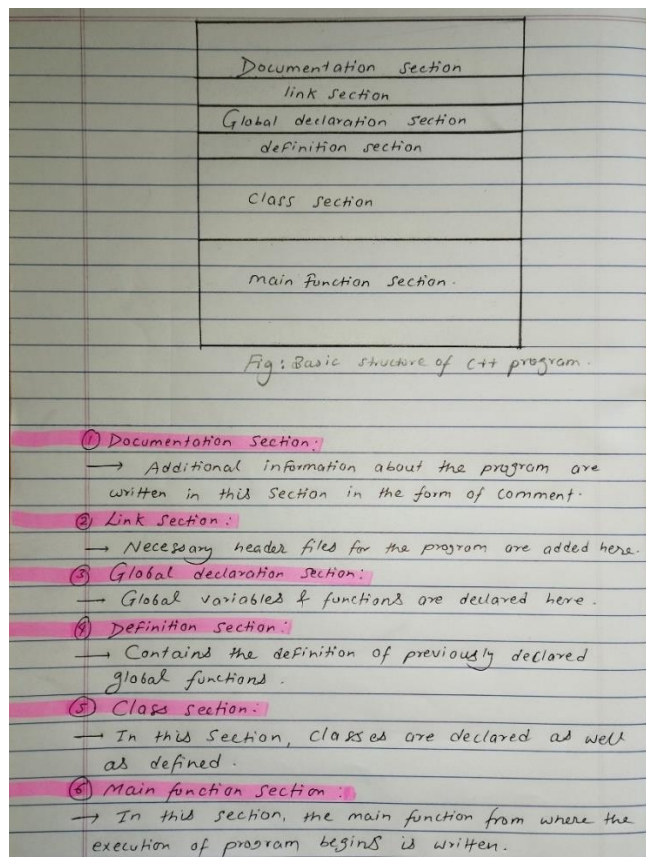 Documentation section
link section
Global declaration section
definition section
Class section
main function section.
Fig: Basic structure of C++ program.
① Documentation section:
→ Additional information about the program are
written in this section in the form of comment.
② Link section:
→ Necessary header files for the program are added here.
③ Global declaration section:
→ Global variables & functions are declared here.
④ Definition section:
→ Contains the definition of previously declared
global functions.
⑤ Class section:
→ In this section, classes are declared as well
as defined.
⑥ Main function section:
→ In this section, the main function from where the
execution of program begins is written.